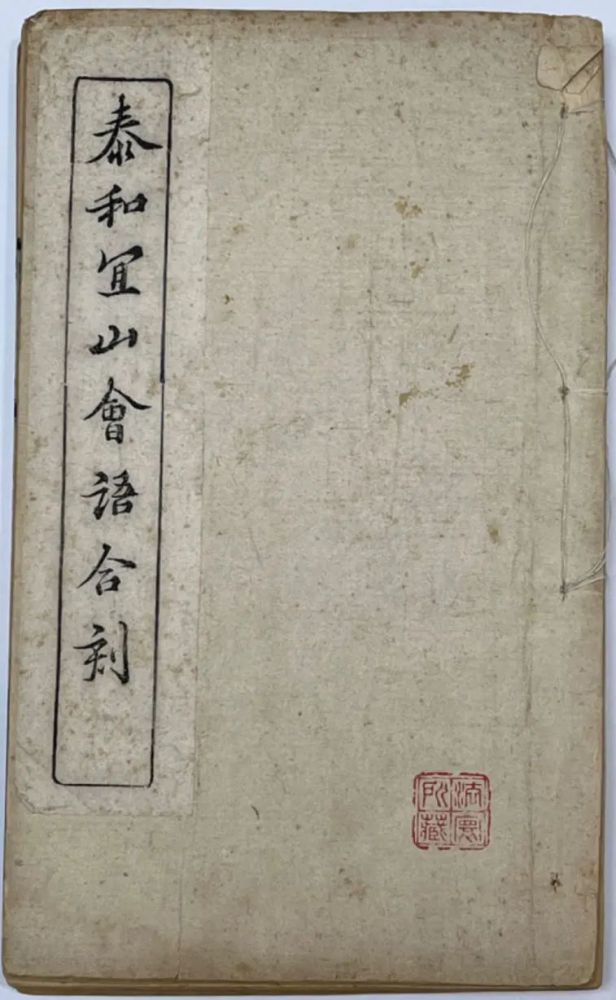 泰和宜山會語合刻
所藏